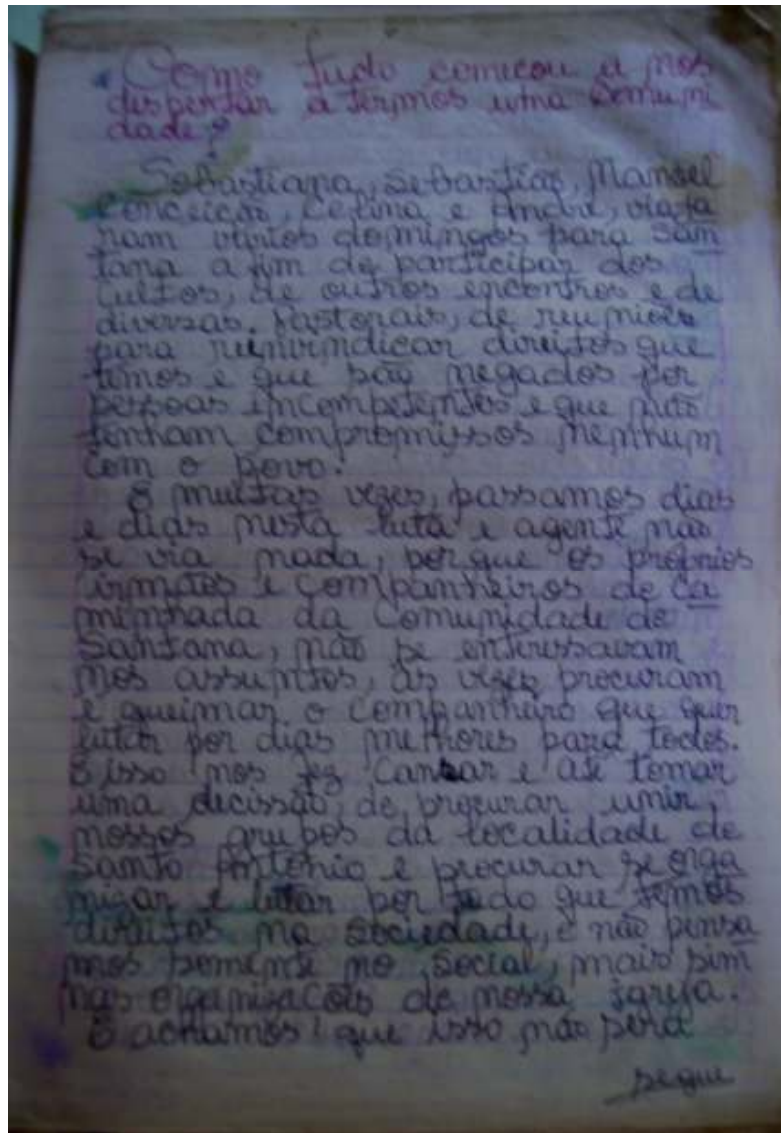 Como tudo começou a nos
despertar a termos uma comuni
dade?
Sebastiana, Sebastião, Manoel
Conceição, Celina e André, viaja
ram vários domingos para San
tana a fim de participar dos
cultos, de outros encontros e de
diversas. Pastorais, de reuniões
para reinvindicar direitos que
temos e que são negados por
pessoas incompetentes e que não
tenham compromissos nenhum
com o povo.
E muitas vezes, passamos dias
e dias nesta luta e agente não
se via nada, porque os próprios
irmãos e companheiros de ca
minhada da Comunidade de
Santana, não se enteressavam
nos assuntos, as vezes procuram
e queimar o companheiro que quer
lutar por dias melhores para todos.
E isso nos fez cansar e até tomar
uma decissão, de procurar unir,
nossos grupos da localidade de
Santo Antonio e procurar se orga
nizar e lutar por tudo que temos
direitos na sociedade, e não pensa
mos somente no social, mais sim
nas organizações de nossa igreja.
E achamos! que isso não será
segue